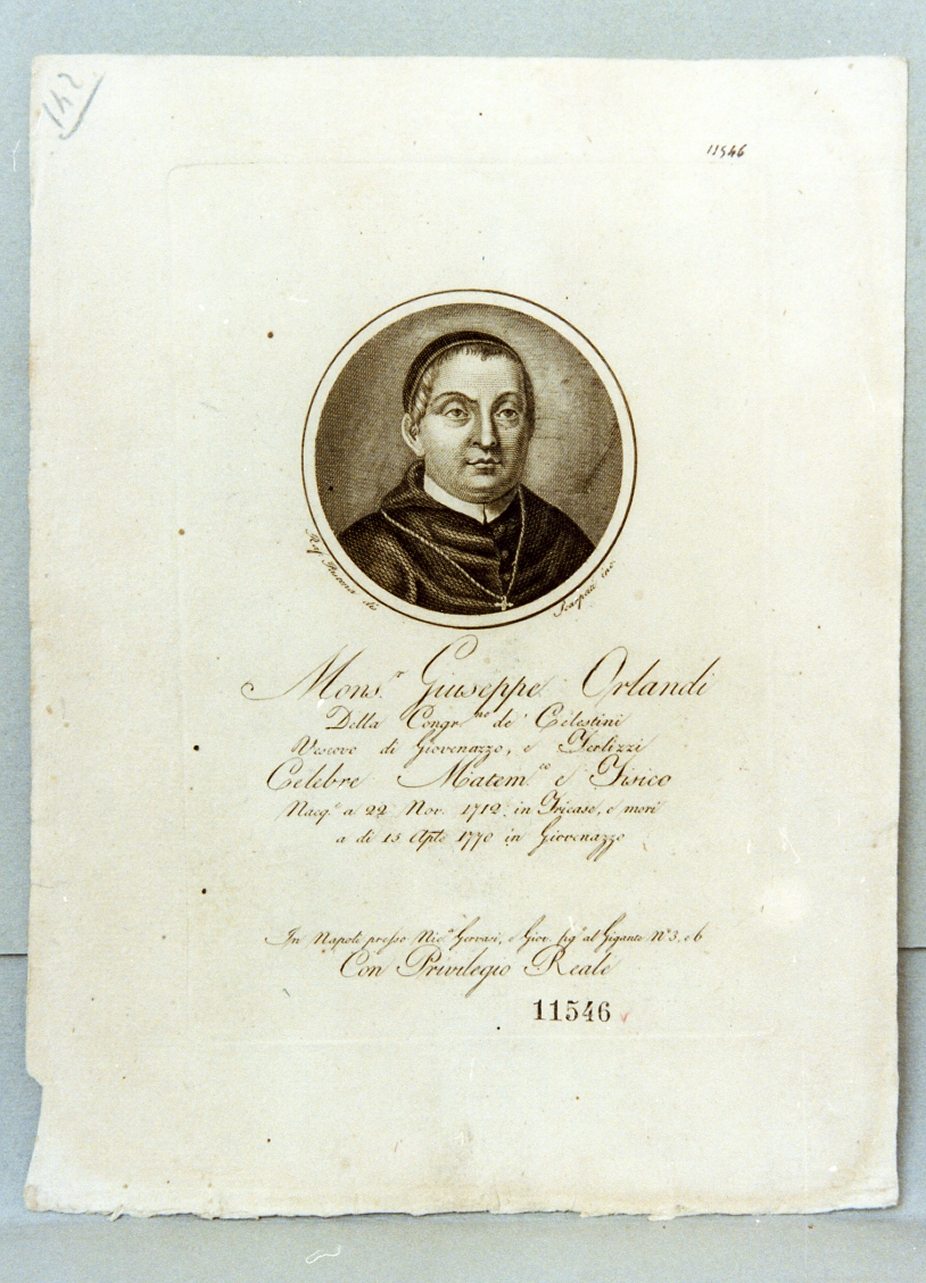 142
11546
Scarpati inc.
Mons.r Giuseppe Orlandi
Della Congr.ne de' Celestini
Vescovo di Giovenazzo, e Terlizzi
Celebre Matem.co e Fisico
Nacq.e a 22 Nov. 1712 in Tricase, e morì
a dì 15 Aple 1770 in Giovenazzo
In Napoli presso Nic.a Gervasi, e Giov. fig.o al Gigante N.o 3, e 6
Con Privilegio Reale
11546